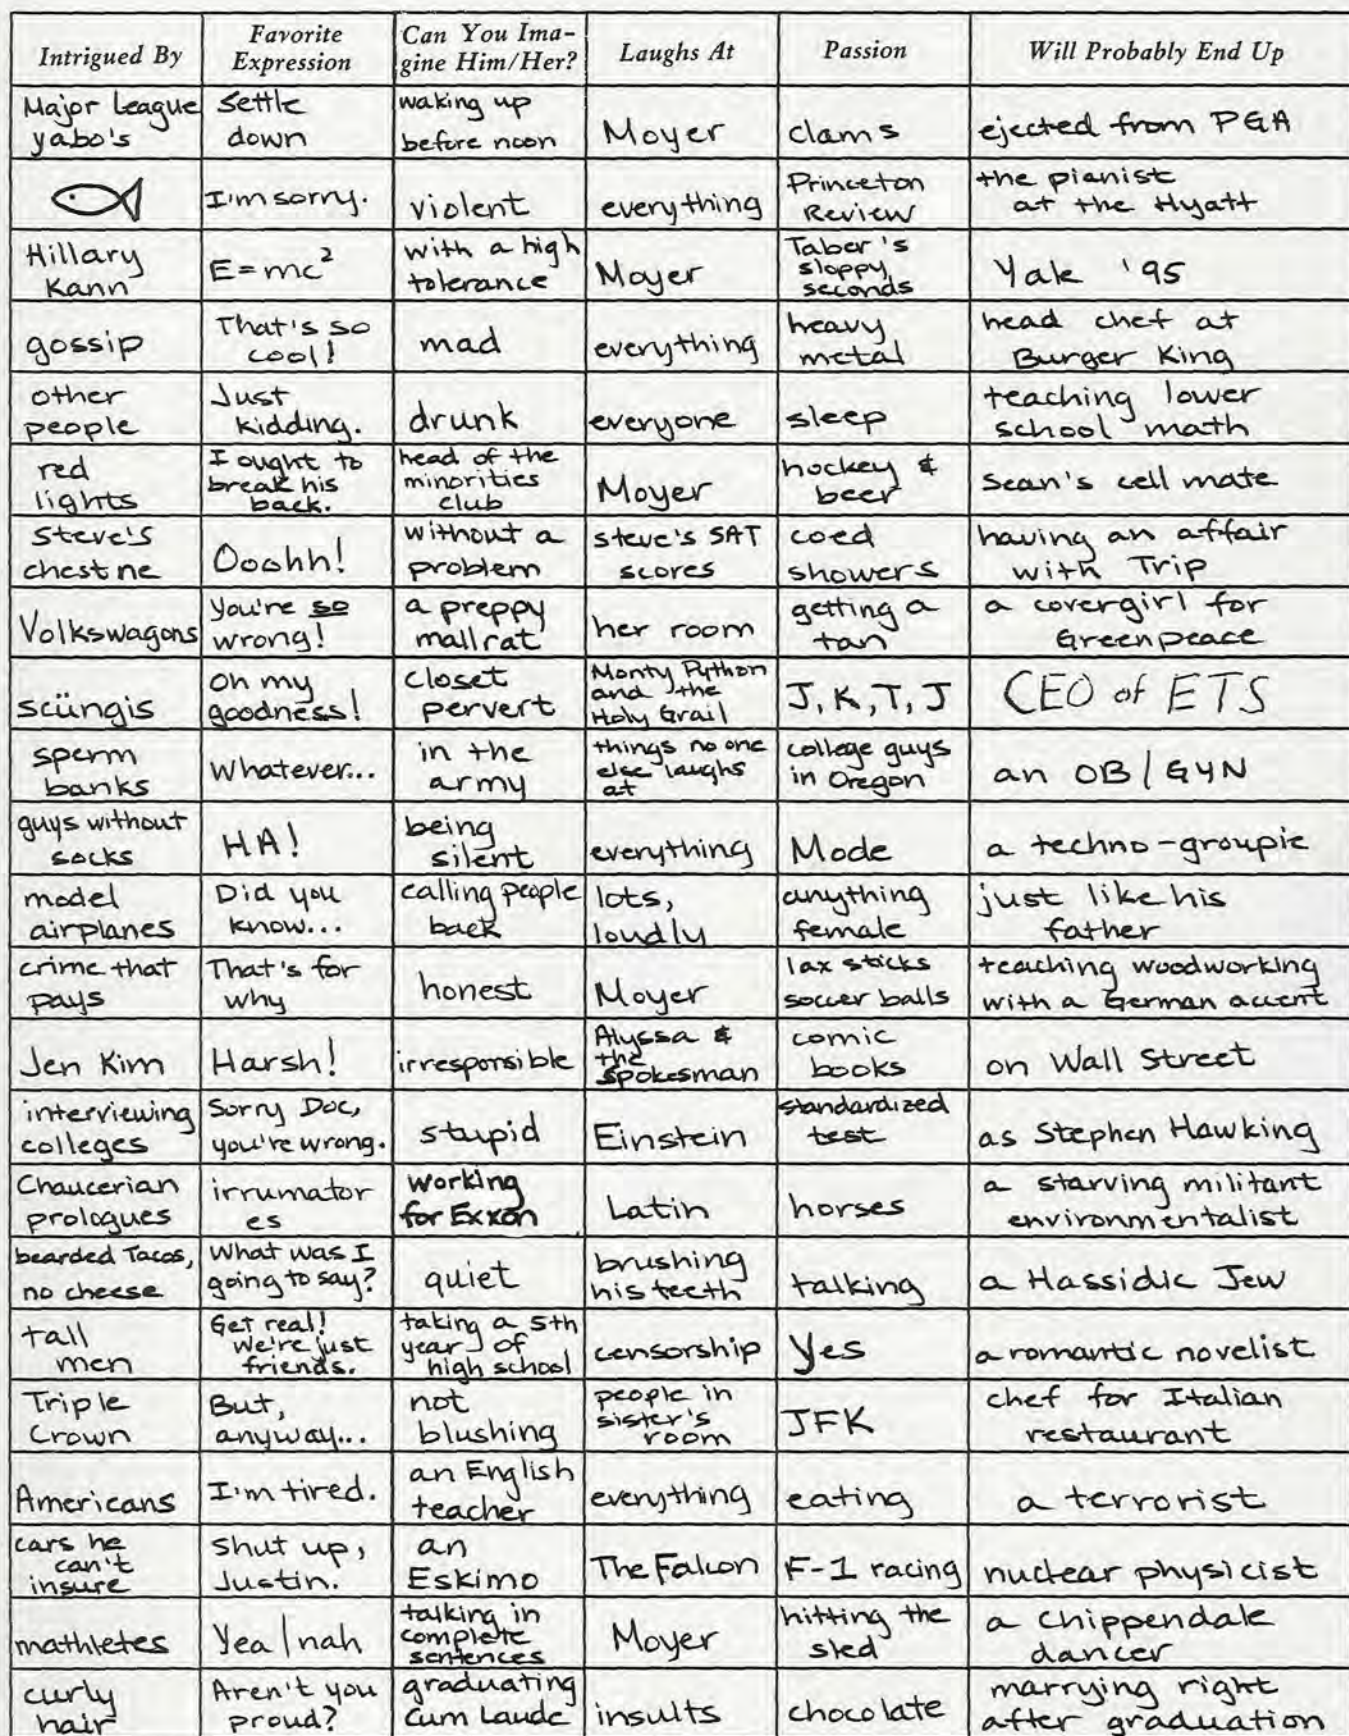 Intrigued By
Favorite
Expression
Can You Ima-
gine Him/Her?
Laughs At
Passion
Will Probably End Up
Major League
yabo's
Settle
down
waking up
before noon
Moyer
clams
ejected from PGA
I'm sorry.
violent
everything
Princeton
Review
the pianist
at the Hyatt
Hillary
Kann
E=mc²
with a high
tolerance
Moyer
Taber's
sloppy
seconds
Yale '95
gossip
That's so
cool!
mad
everything
heavy
metal
head chef at
Burger King
other
people
Just
kidding.
drunk
everyone
sleep
teaching lower
school math
red
lights
I ought to
break his
back.
head of the
minorities
club
Moyer
hockey &
beer
Sean's cell mate
Steve's
chest ne
Ooohh!
without a
problem
steve's SAT
scores
coed
showers
having an affair
with Trip
Volkswagons
You're so
wrong!
a preppy
mallrat
her room
getting a
tan
a covergirl for
Greenpeace
scüngis
Oh my
goodness!
closet
pervert
Monty Python
and the
Holy Grail
J, K, T, J
CEO of ETS
sperm
banks
Whatever...
in the
army
things no one
else laughs
at
college guys
in Oregon
an OB/GYN
guys without
socks
HA!
being
silent
everything
Mode
a techno-groupie
model
airplanes
Did you
know...
calling people
back
lots,
loudly
anything
female
just like his
father
crime that
pays
That's for
why
honest
Moyer
lax sticks
soccer balls
teaching woodworking
with a German accent
Jen Kim
Harsh!
irresponsible
Alyssa &
the
Spokesman
comic
books
on Wall Street
interviewing
colleges
Sorry Doc,
you're wrong.
stupid
Einstein
standardized
test
as Stephen Hawking
Chaucerian
prologues
irrumator
es
working
for Exxon
Latin
horses
a starving militant
environmentalist
bearded Tacos,
no cheese
What was I
going to say?
quiet
brushing
his teeth
talking
a Hassidic Jew
tall
men
Get real!
We're just
friends.
taking a 5th
year of
high school
censorship
Yes
a romantic novelist
Triple
Crown
But,
anyway...
not
blushing
people in
sister's
room
JFK
chef for Italian
restaurant
Americans
I'm tired.
an English
teacher
everything
eating
a terrorist
cars he
can't
insure
Shut up,
Justin.
an
Eskimo
The Falcon
F-1 racing
nuclear physicist
mathletes
Yea/nah
talking in
complete
sentences
Moyer
hitting the
sled
a Chippendale
dancer
curly
hair
Aren't you
proud?
graduating
Cum Laude
insults
chocolate
marrying right
after graduation